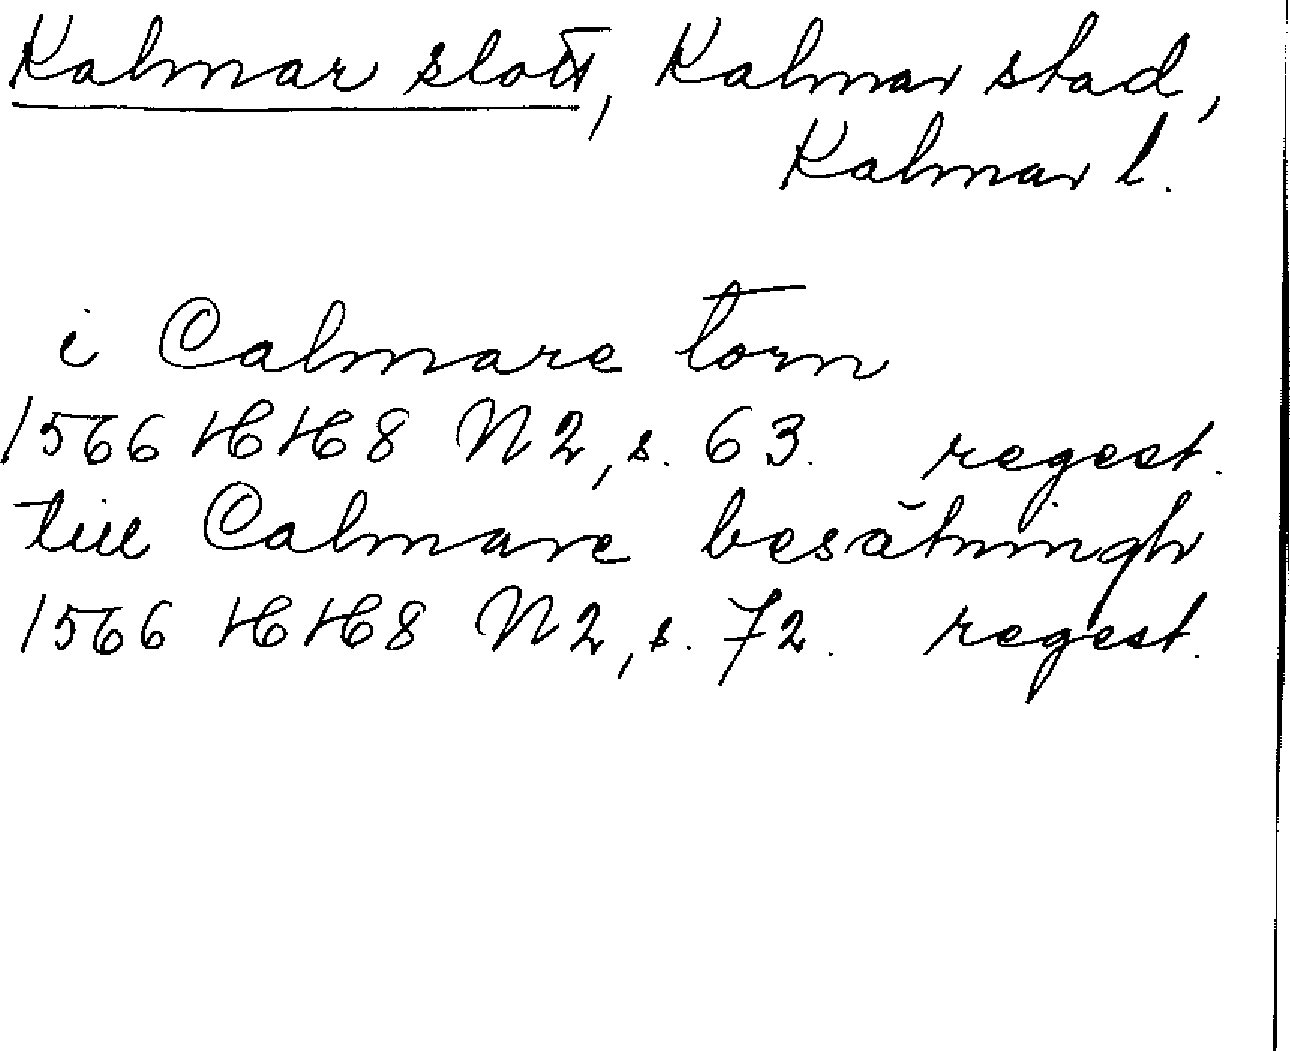 Kalmar slott, Kalmar stad,
Kalmar l.
i Calmare torn
1566 HH8 N2, s. 63. regest.
till Calmare besätningh
1566 HH8 N2, s. 72. regest.